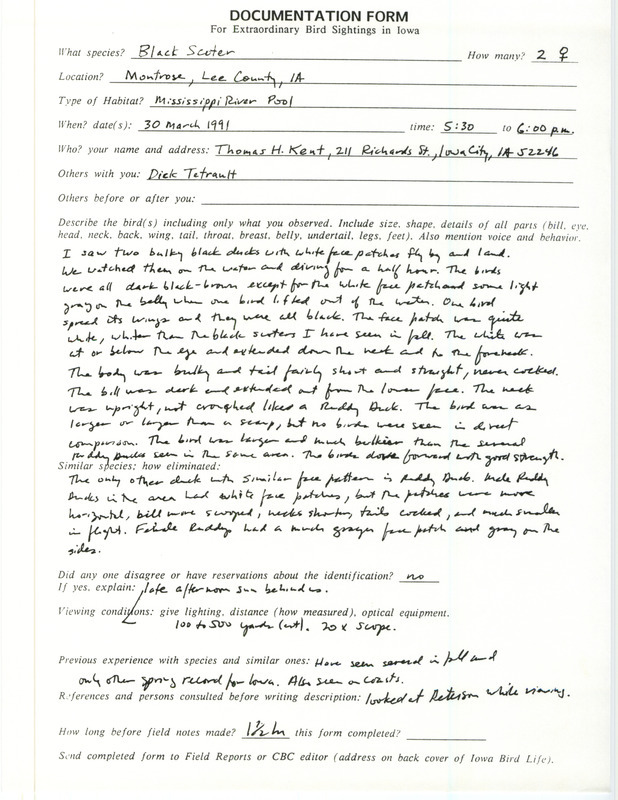 DOCUMENTATION FORM
For Extraordinary Bird Sightings in Iowa
What species? Black Scoter How many? 2 ♀
Location? Montrose, Lee County, IA
Type of Habitat? Mississippi River Pool
When? date(s): 30 March 1991 time: 5:30 to 6:00 p.m.
Who? your name and address: Thomas H. Kent, 211 Richards St., Iowa City, IA 52246
Others with you: Dick Tetrault
Others before or after you:
Describe the bird(s) including only what you observed. Include size, shape, details of all parts (bill, eye,
head, neck, back, wing, tail, throat, breast, belly, undertail, legs, feet). Also mention voice and behavior.
I saw two bulky black ducks with white face patches fly by and land.
We watched them on the water and diving for a half hour. The birds
were all dark black-brown except for the white face patch and some light
gray on the belly when one bird lifted out of the water. One bird
spread its wings and they were all black. The face patch was quite
white, whiter than the black scoters I have seen in fall. The white was
at or below the eye and extended down the neck and to the foreneck.
The body was bulky and tail fairly short and straight, never cocked.
The bill was dark and extended out from the lower face. The neck
was upright, not crouched like a Ruddy Duck. The bird was as
large or larger than a scaup, but no birds were seen in direct
comparison. The bird was larger and much bulkier than the several
Ruddy Ducks seen in the same area. The birds dove forward with good strength.
Similar species; how eliminated:
The only other duck with similar face pattern is Ruddy Duck. Male Ruddy
Ducks in the area had white face patches, but the patches were more
horizontal, bill more scooped, necks shorter, tails cocked, and much smaller
in flight. Female Ruddys had a much grayer face patch and gray on the
sides.
Did any one disagree or have reservations about the identification? no
If yes, explain: late afternoon sun behind us.
Viewing conditions: give lighting, distance (how measured), optical equipment.
100 to 500 yards (est). 20x scope.
Previous experience with species and similar ones: Have seen several in fall and
only other spring record for Iowa. Also seen on coasts.
References and persons consulted before writing description: looked at Peterson while viewing.
How long before field notes made? 1½ hr this form completed?
Send completed form to Field Reports or CBC editor (address on back cover of Iowa Bird Life).